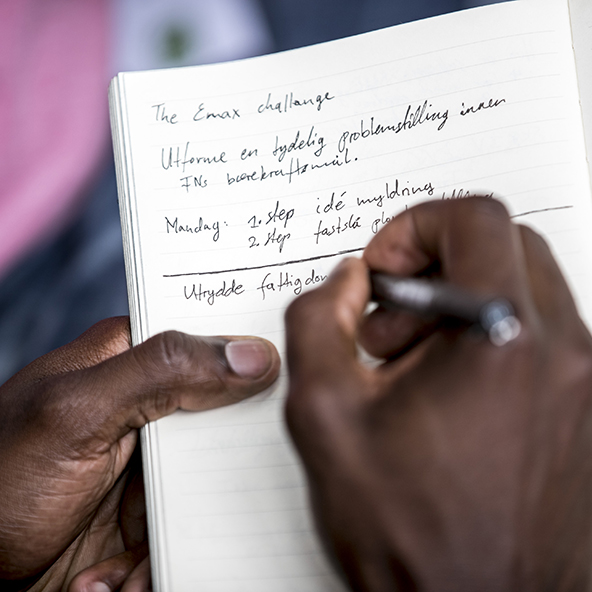 The Emax challange
Utforme en tydelig problemstilling innen
FNs bærekraftsmål.
Manday: 1. step idé myldring
2. step fastslå
Utrydde fattigdom